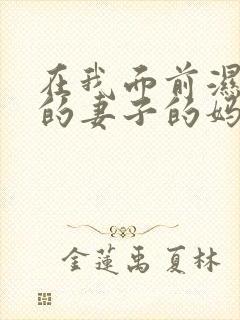 在我面前濕
的妻子的妈
金莲禹夏林